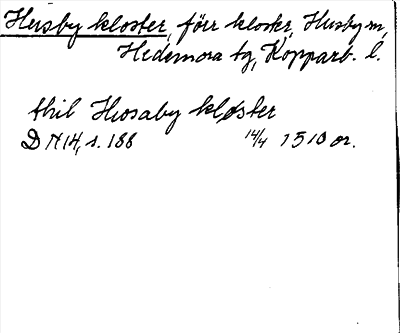 Husby kloster, förr kloster, Husby sn,
Hedemora tg, Kopparb. l.
thil Hwsaby kloster
D N 14, s. 188 14/4 1510 or.